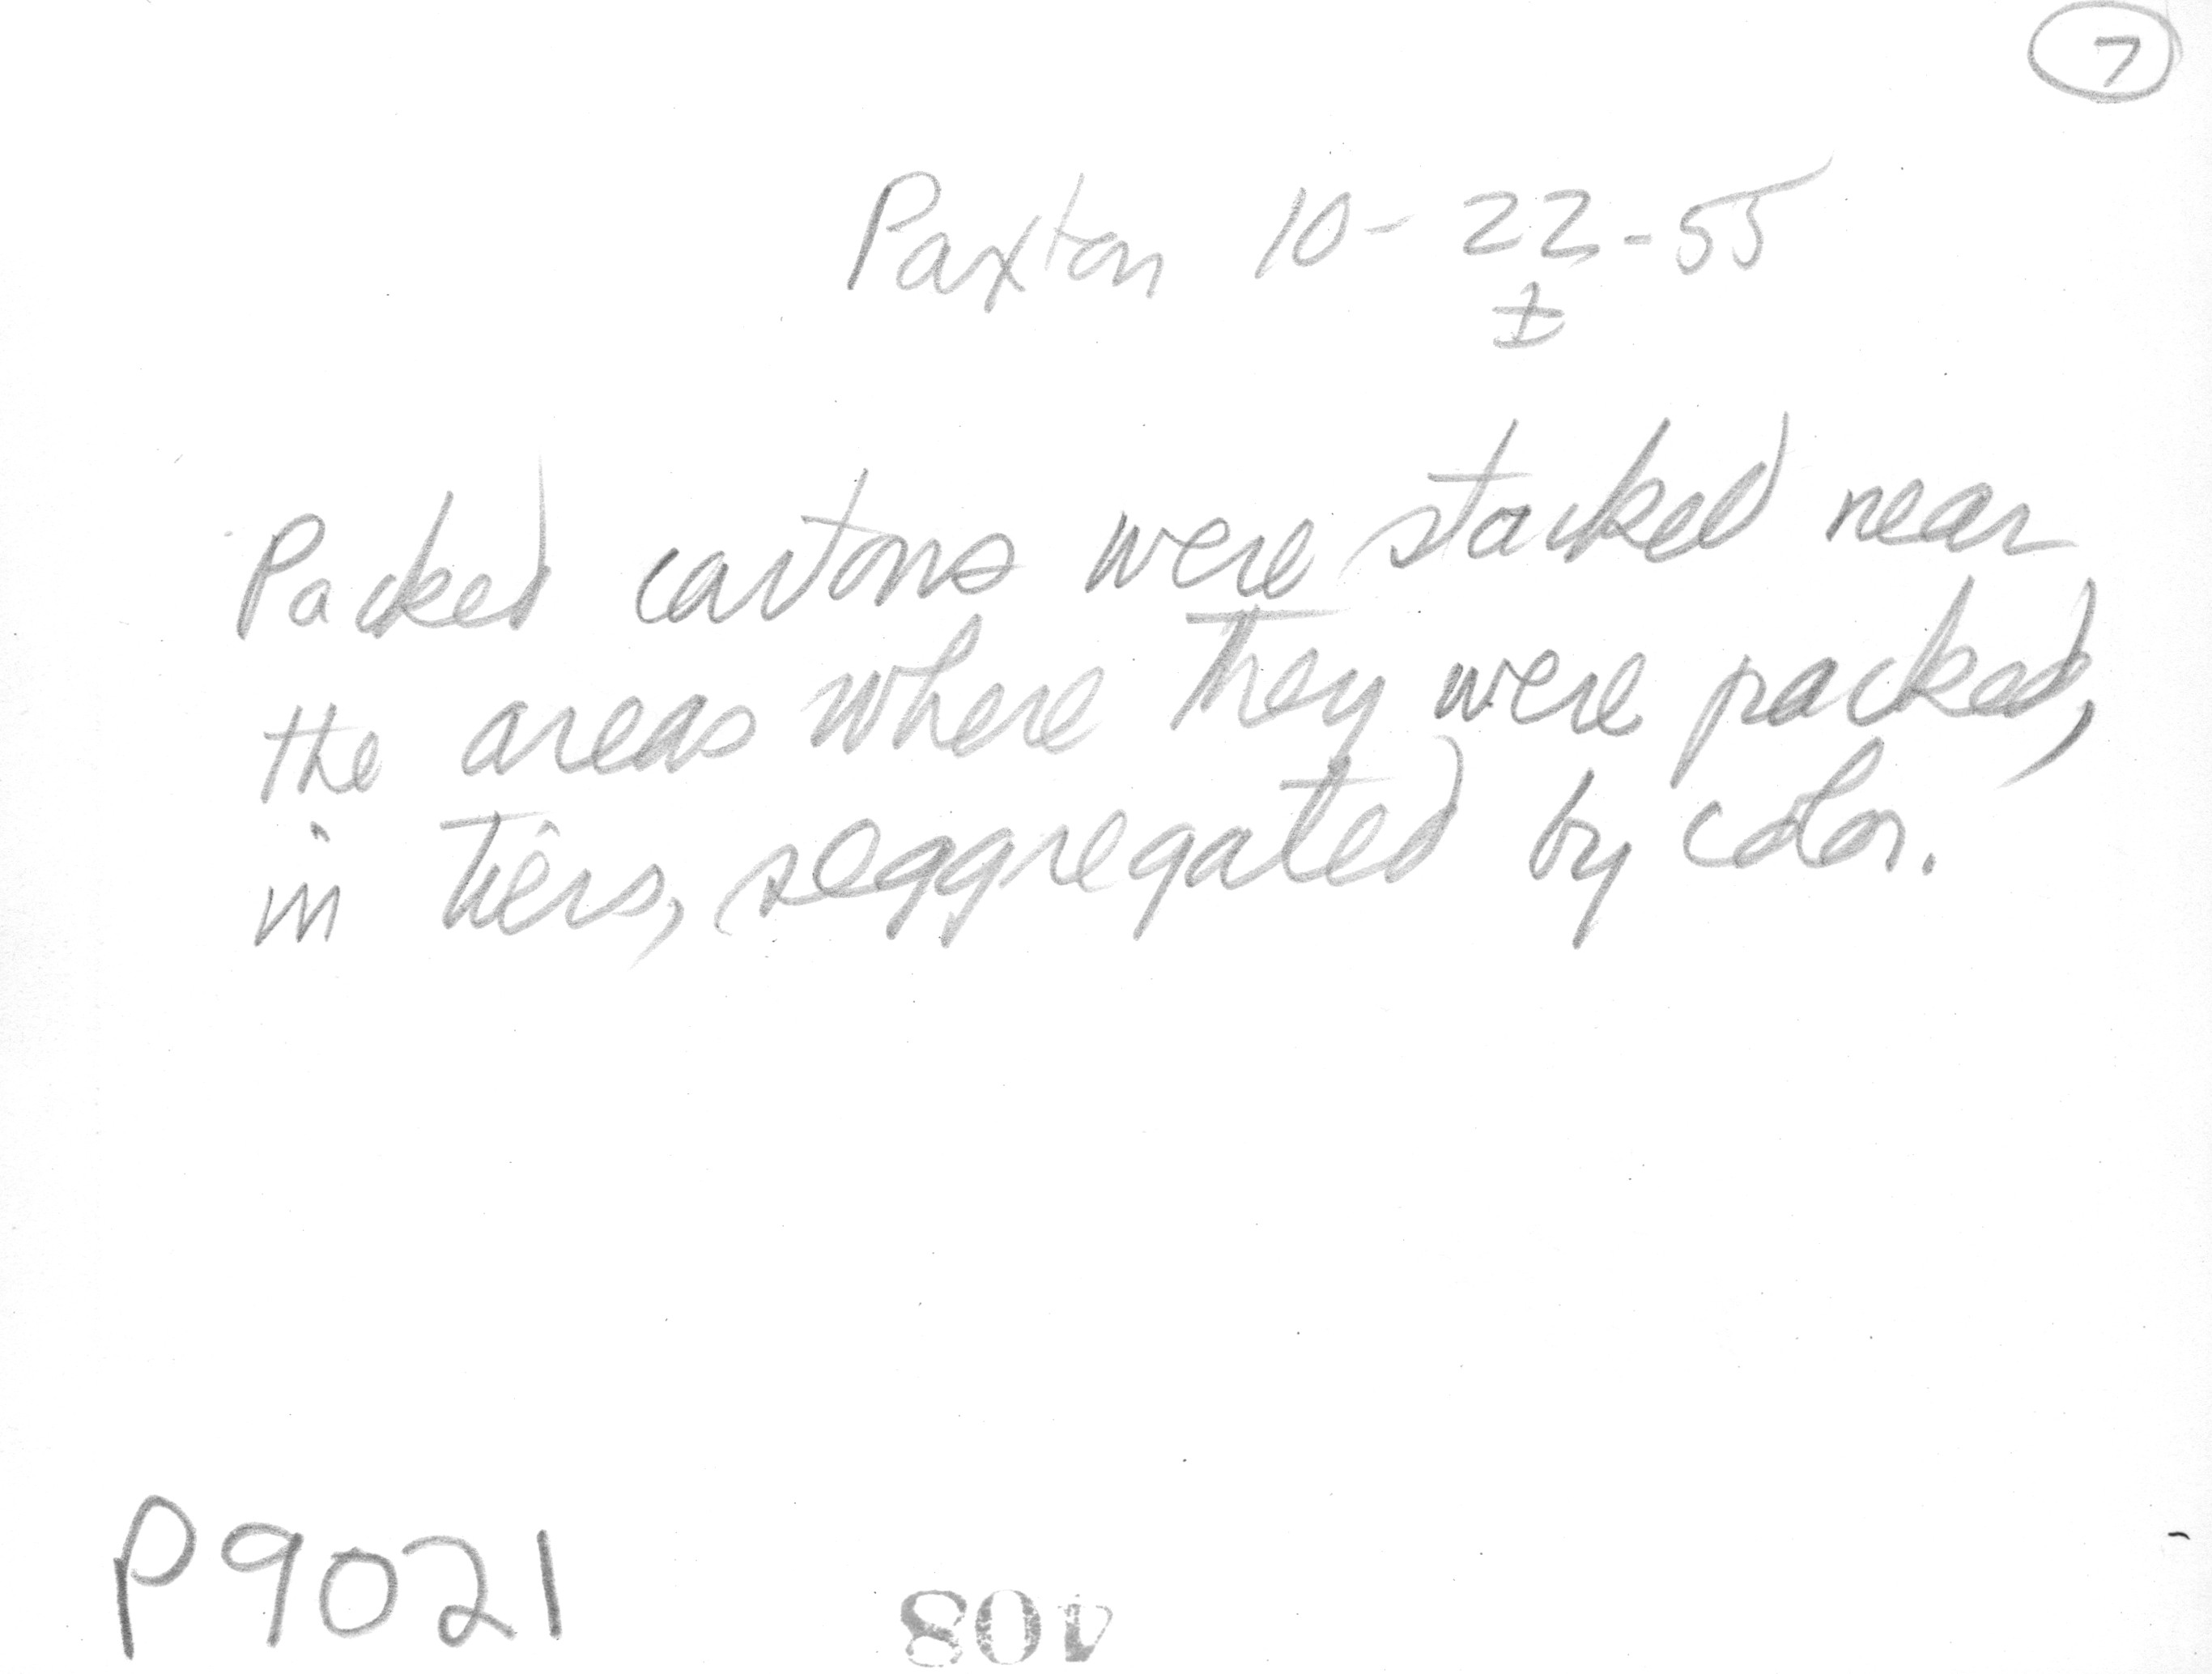 7
Paxton 10-22-55
±
Packed cartons were stacked near
the areas where they were packed,
in tiers, seggregated by color.
P9021